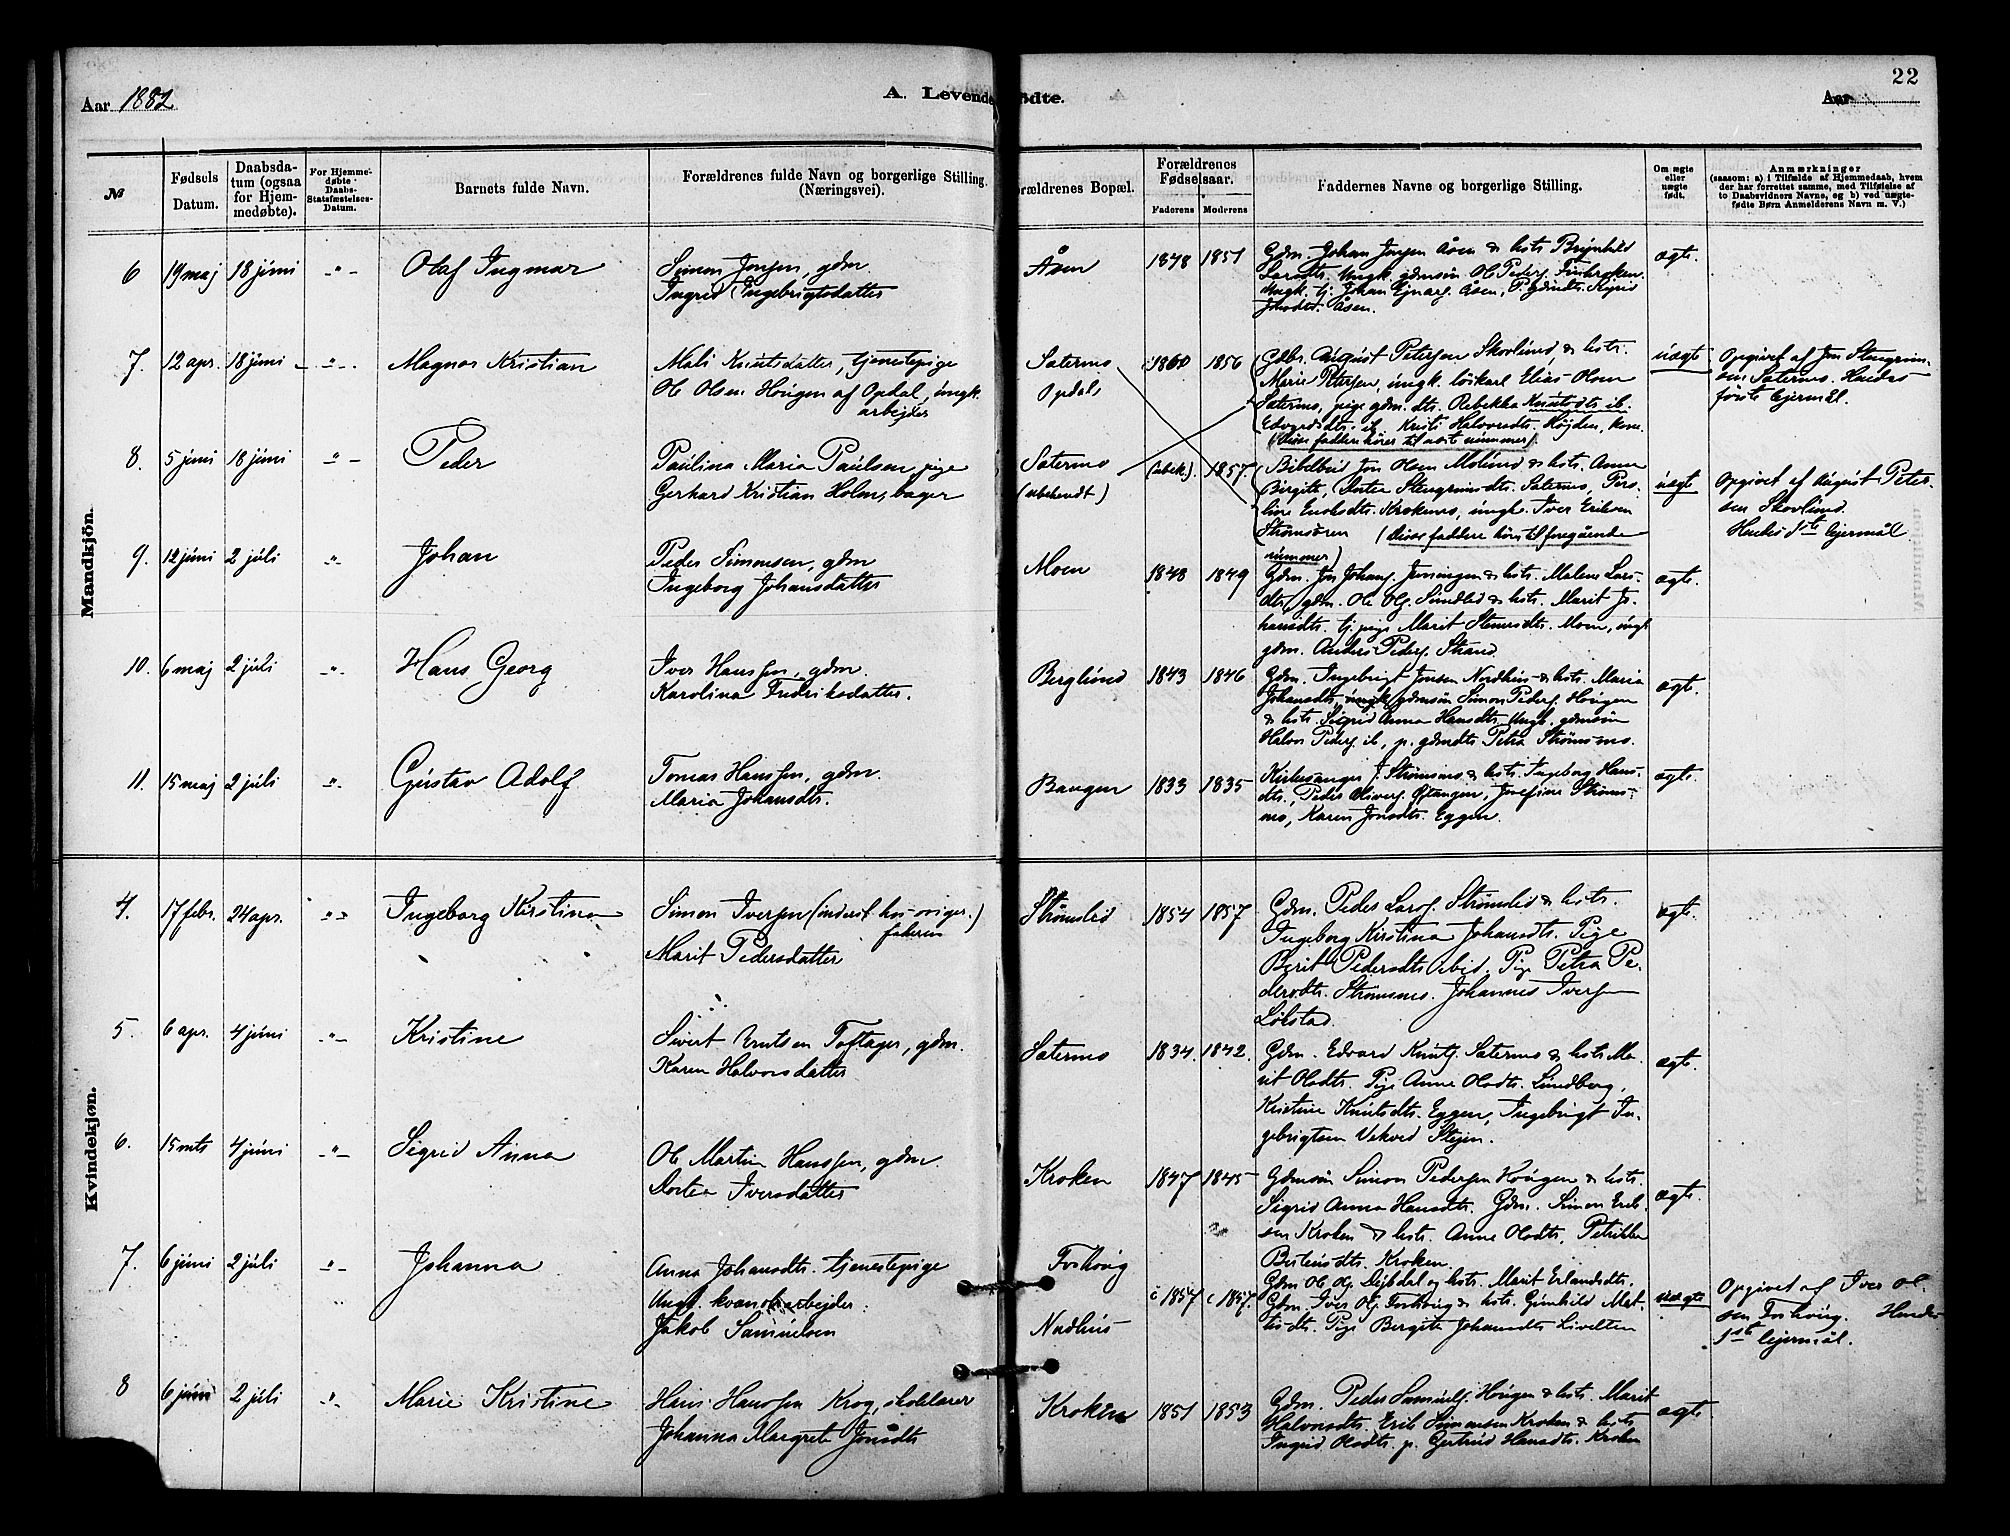 22
Aar 1882.
A. Levende
ødte.
Aar
№
Fødsels Datum.
Daabsda-
tum (ogsaa
for Hjem-
medøbte).
For Hjemme-
døbte
Daabs-
Statsfæstelses-
Datum.
Barnets fulde Navn.
Forældrenes fulde Navn og borgerlige Stilling.
(Næringsvei).
orældrenes Bopæl.
Forældrenes
Fødselsaar.
Faderens
Moderens
Faddernes Navne og borgerlige Stilling.
Om ægte
eller
uægte
født.
Anmærkninger
(saasom: a) i Tilfælde af Hjemmedaab, hvem
der har forrettet samme, med Tilføielse af
to Daabsvidners Navne, og b) ved uægte-
fødte Børn Anmelderens Navn m. V.)
Mandkjön.
6 19 maj 18 juni -"- Olaf Ingmar
Simon Jonsen, gdm.
Ingrid Ingebrigtsdatter
Åsen 1848 1851
Gdm. Johan Jonsen Åsen & hst. Brynhild
Larsdtr. Ungk. gdmsøn Ole Peders. Finkroken.
Ungk. tj. Johan Ejnars. Åsen, P. gdmdtr. Sigrid
Jonsdtr. Åsen.
ægte.
7. 12 apr. 18 juni -"- Magnos Kristian
Mali Knutsdatter, tjenestepige
Ole Olsen Hougen af Opdal, ungk.
arbejder
Satermo
Opdal
1860 1856
Gdbr. August Petersen Skovlund, & hstr.
Marie Petersen, ungk. löskarl Elias Olsen
Satermo, pige gdm. dtr. Rebekka Knutsdtr. ib.
Edvardsdtr. ib. Kristi Halvorsdtr. Højden, kone.
(disse faddere hörer til næste nummer)
uægte
Opgivet af Jon Stengrim-
sen Satermo. Hendes
förste lejermål.
8. 5 juni 18 juni -"- Peder
Paulina Maria Paulsen, pige
Gerhard Kristian Holm, bager
Satermo
(ubekendt)
(ubek.) 1857.
Bibelbud Jon Olsen Molund & hstr. Anne
Birgitte, Dortea Stengrimsdtr. Satermo, Pero-
line Enoksdtr. Krokenes, ungk. Iver Eriksen
Strömsören (disse faddere hörer til foregående
nummer)
uægte
Opgivet af August Peter-
sen Skovlund.
Hendes 1ste lejermål
9. 12 juni 2 juli -"- Johan
Peder Simonsen, gdm
Ingeborg Johansdatter
Moen 1848 1849
Gdm. Jon Johans. Jenningen & hstr. Malene Lars-
dtr, gdm. Ole Ols. Sundlid & hstr. Marit Jo-
hansdtr. tj. pige Marit Stenersdtr. Moen, ungk
gdm. Anders Peders. Strand
ægte.
10. 6 maj 2 juli -"- Hans Georg
Iver Hanssen, gdm.
Karolina Fredriksdatter.
Berglund 1843 1846
Gdm. Ingebrigt Jonsen Nordhus & hstr. Maria
Johansdtr, ungk gdmsøn Simon Peders. Hougen
& hstr. Sigrid Anna Hansdtr. Ungk. gdmsøn
Halvor Peders. ib, p. gdmdtr. Petra Strömsmo.
ægte.
11. 15 maj 2 juli -"- Gustav Adolf
Tomas Hanssen, gdm.
Maria Johansdtr.
Baugen 1833 1835
Kirkesanger J. Strömsmo & hstr. Ingeborg Hans-
dtr., Peder Olivers. Baugen, Josefine Ströms-
mo, Karen Jonsdtr. Eggen.
ægte.
Kvindekjøn.
4. 17 febr. 24 apr. -"- Ingeborg Kirstina
Simon Iversen (inderst hos svigerfaderen)
Marit Pedersdatter
Strömslid 1854 1857
Gdm. Peder Lars. Strömslid & hstr.
Ingeborg Kirstina Johansdtr. Pige
Berit Pedersdtr. ibid. Pige Petra Pe-
dersdtr. Strömsmo. Johannes Iversen
Løkstad.
ægte.
5. 6 apr. 4 juni -"- Kristine
Sivert Knutsen Toftager, gdm.
Karen Halvorsdatter
Satermo 1834. 1842.
Gdm. Edvard Knuts. Satermo & hstr. Ma-
rit Olsdtr. Pige Anne Olsdtr. Lundberg,
Kristine Knutsdtr. Eggen, Ingebrigt In-
gebrigtsen Vekved Stejen.
ægte.
6. 15 mts 4 juni -"- Sigrid Anna
Ole Martin Hanssen, gdm.
Dortea Iversdatter
Kroken 1847 1845
Gdmsøn Simon Pedersen Hougen & hstr.
Sigrid Anna Hansdtr. Gdm. Simon Erik-
sen Kroken & hstr. Anne Olsdtr. Petrikke
Kroken.
ægte.
7. 6 juni 2 juli -"- Johanna
Anna Johansdtr. tjenestepige
Ungk. arbejder:
Jakob Samuelsen
Foshoug
Nordhus
c 1857 c 1857.
Gdm Ole Ols. Dejbdal og hstr. Marit Erlandsdtr.
Gdm. Iver Ols. Foshoug & hstr. Gunhild Mat-
tisdtr. Pige Bergitte Johansdtr. Livelten
uægte
Opgivet af Iver Ol-
sen Foshoug. Hendes
1ste lejermål.
8 6 juni 2 juli -"- Marie Kristine
Hans Hanssen Krog, skolelærer
Johanna Margrete Jonsdtr
Kroken 1851 1853
Gdm. Peder Samuels. Hougen & hstr. Marit
Halvorsdtr. Erik Simonsen Kroken & hstr.
Ingrid Olsdtr. p. Gjertrud Hansdtr. Kroken
ægte.